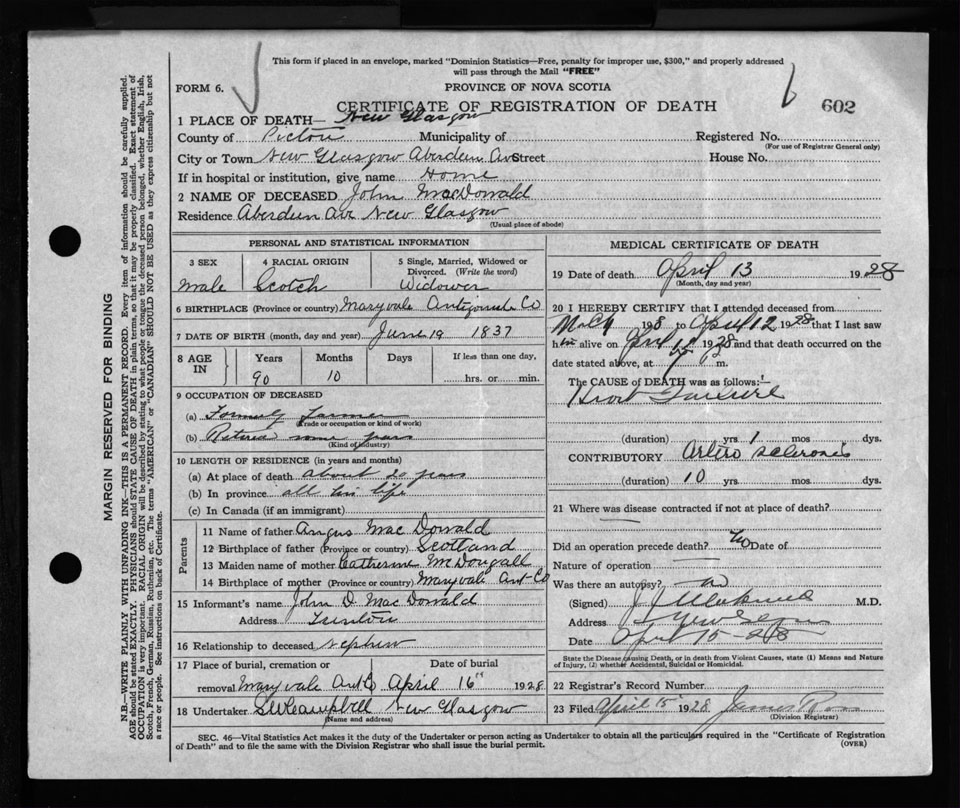 This form if placed in an envelope, marked "Dominion Statistics—Free, penalty for improper use, $300," and properly addressed
will pass through the Mail "FREE"
FORM 6.
PROVINCE OF NOVA SCOTIA
CERTIFICATE OF REGISTRATION OF DEATH
602
1 PLACE OF DEATH— New Glasgow
County of Pictou Municipality of Registered No.
(For use of Registrar General only)
City or Town New Glasgow Aberdeen Ave Street House No.
If in hospital or institution, give name Home
2 NAME OF DECEASED John MacDonald
Residence Aberdeen Ave New Glasgow
(Usual place of abode)
PERSONAL AND STATISTICAL INFORMATION
3 SEX 4 RACIAL ORIGIN 5 Single, Married, Widowed or
Divorced. (Write the word)
Male Scotch Widower
6 BIRTHPLACE (Province or country) Maryvale Antigonish Co
7 DATE OF BIRTH (month, day and year) June 19 1837
8 AGE IN Years Months Days If less than one day,
90 10 hrs. or min.
9 OCCUPATION OF DECEASED
(a) Formerly Farmer
(Trade or occupation or kind of work)
(b) Retired some years
(Kind of industry)
10 LENGTH OF RESIDENCE (in years and months)
(a) At place of death about 20 years
(b) In province all his life
(c) In Canada (if an immigrant)
Parents
11 Name of father Angus MacDonald
12 Birthplace of father (Province or country) Scotland
13 Maiden name of mother Catherine McDougall
14 Birthplace of mother (Province or country) Maryvale Ant-Co
15 Informant's name John D. MacDonald
Address
16 Relationship to deceased Nephew
17 Place of burial, cremation or Date of burial
removal Maryvale Ant Co April 16" 1928
18 Undertaker Campbell New Glasgow
(Name and address)
MEDICAL CERTIFICATE OF DEATH
19 Date of death April 13 1928
(Month, day and year)
20 I HEREBY CERTIFY that I attended deceased from
to April 12 1928 that I last saw
him alive on April 1928 and that death occurred on the
date stated above, at m.
The CAUSE of DEATH was as follows:
Heart Failure
(duration) yrs 1 mos dys.
CONTRIBUTORY Arterio sclerosis
(duration) 10 yrs. mos. dys.
21 Where was disease contracted if not at place of death?
Did an operation precede death? No Date of
Nature of operation —
Was there an autopsy? no
(Signed) M.D.
Address New Glasgow
Date April 15-28
State the Disease causing Death, or in death from Violent Causes, state (1) Means and Nature
of Injury, (2) whether Accidental, Suicidal or Homicidal.
22 Registrar's Record Number
23 Filed April 15 1928 James Ross
(Division Registrar)
SEC. 46—Vital Statistics Act makes it the duty of the Undertaker or person acting as Undertaker to obtain all the particulars required in the "Certificate of Registration
of Death" and to file the same with the Division Registrar who shall issue the burial permit.
(OVER)
MARGIN RESERVED FOR BINDING
N.B.—WRITE PLAINLY WITH UNFADING INK—THIS IS A PERMANENT RECORD. Every item of information should be carefully supplied.
AGE should be stated EXACTLY. PHYSICIANS should STATE CAUSE OF DEATH in plain terms, so that it may be properly classified. Exact statement of
OCCUPATION is very important. RACIAL ORIGIN will be described by stating to what people or tongue the deceased person belonged, whether English, Irish,
Scotch, French, German, Russian, Ruthenian, etc. The terms "AMERICAN" or "CANADIAN" SHOULD NOT BE USED as they express citizenship but not
a race or people. See instructions on back of Certificate.